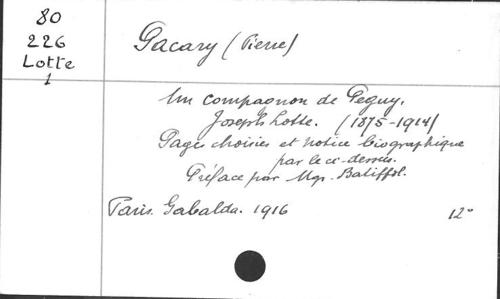 80
226
Lotte
1
Pacary (Pierre)
Un compagnon de Peguy,
Joseph Lotte. (1875-1914)
Pages choisies et notice biographique
par le ci-dessus.
Préface par Mgr. Batiffol.
Paris. Gabalda. 1916 12°